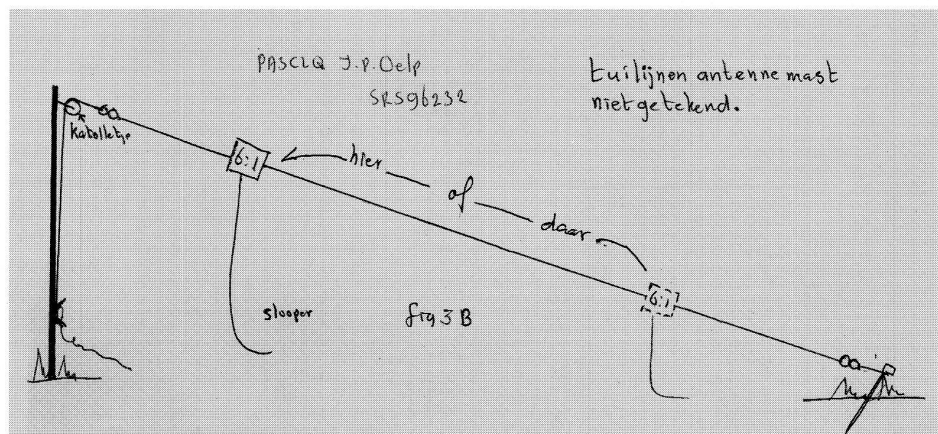 PA5CLQ J.P. Oelp
SRS96232
tuilijnen antennemast
niet getekend.
katolletje
6:1
hier
of
daar
6:1
slooper
fig 3 B